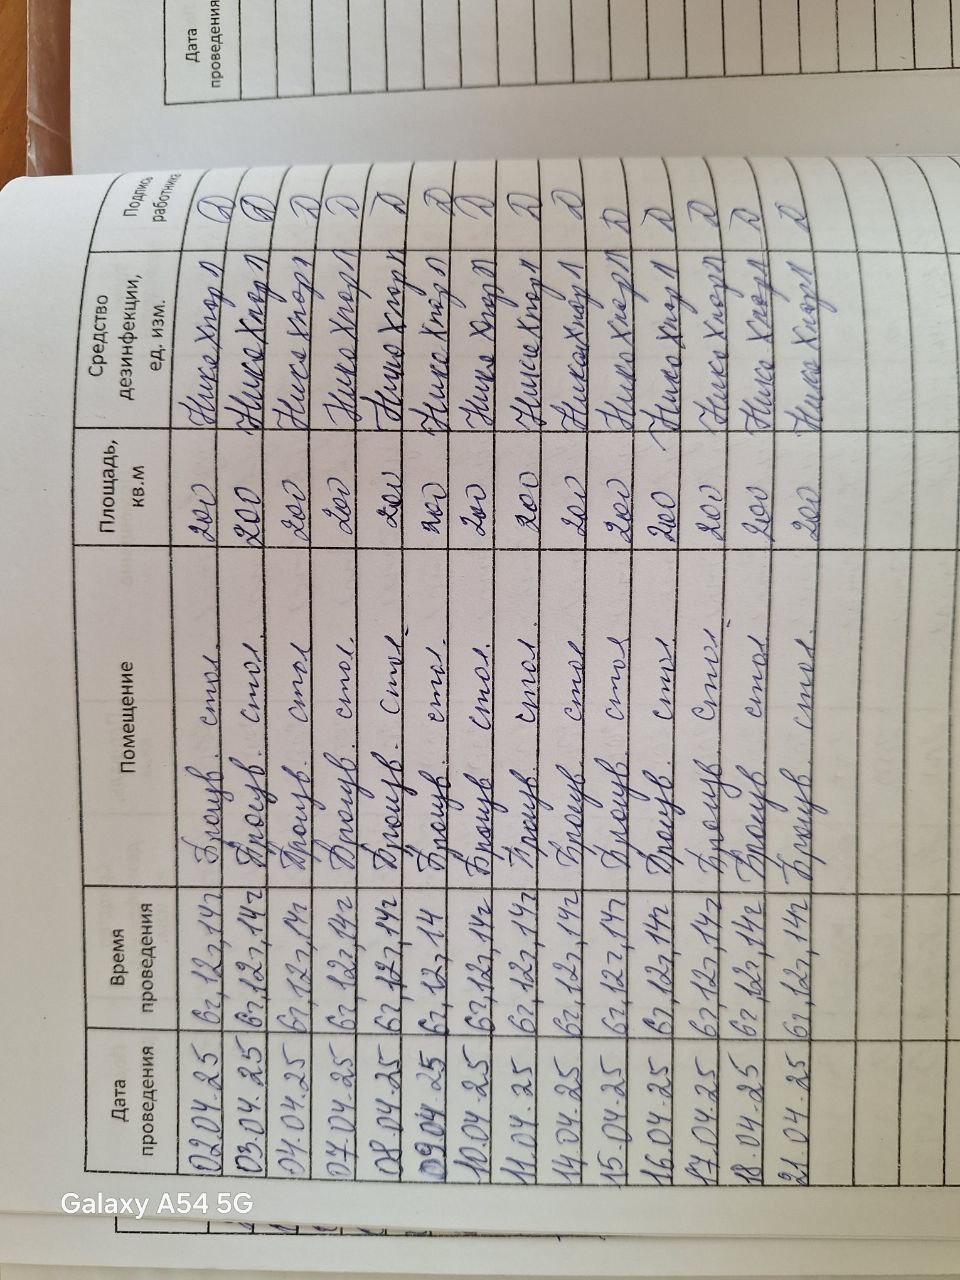 Дата проведения
Дата проведения Время проведения Помещение Площадь, кв.м Средство дезинфекции, ед. изм. Подпись работника
02.04.25 6ч,12ч,14ч стол. 200 Ника Хлор Д
03.04.25 6ч,12ч,14ч стол 200 Ника Хлор Д
04.04.25 6ч,12ч,14ч стол 200 Ника Хлор Д
07.04.25 6ч,12ч,14ч стол. 200 Ника Хлор Д
08.04.25 6ч,12ч,14ч стол 200 Ника Хлор Д
09.04.25 6ч,12ч,14 стол. 200 Ника Хлор Д
10.04.25 6ч,12ч,14ч стол. 200 Ника Хлор Д
11.04.25 6ч,12ч,14ч стол. 200 Ника Хлор Д
14.04.25 6ч,12ч,14ч стол. 200 Ника Хлор Д
15.04.25 6ч,12ч,14ч стол 200 Ника Хлор Д
16.04.25 6ч,12ч,14ч стол. 200 Ника Хлор Д
17.04.25 6ч,12ч,14ч стол 200 Ника Хлор Д
18.04.25 6ч,12ч,14ч стол 200 Ника Хлор Д
21.04.25 6ч,12ч,14ч стол. 200 Ника Хлор Д
Galaxy A54 5G